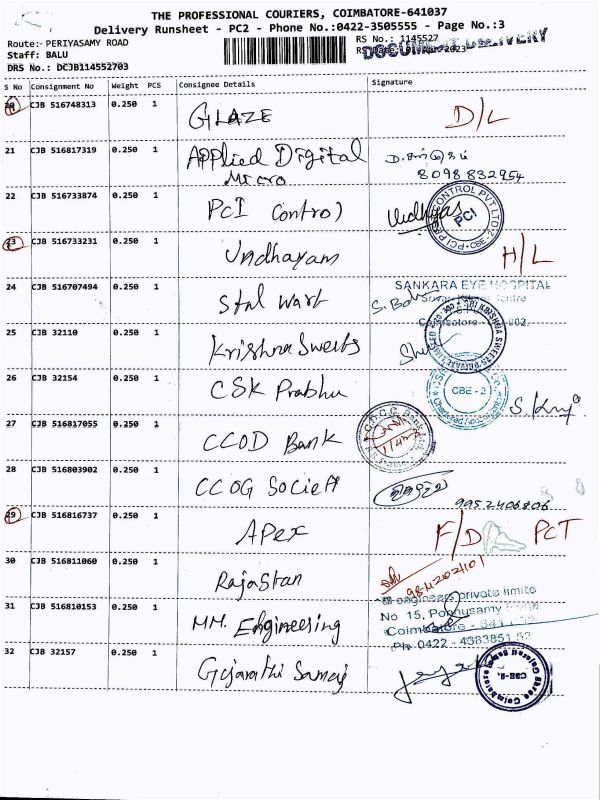 THE PROFESSIONAL COURIERS, COIMBATORE-641037
Delivery Runsheet - PC2 - Phone No.:0422-3505555 - Page No.:3
Route:- PERIYASAMY ROAD
RS No.: 1145527
Staff: BALU
DOCUMENT DELIVERY
DRS No.: DCJB114552703
S No Consignment No Weight PCS Consignee Details Signature
CJB 516748313 0.250 1 GLAZE D/L
21 CJB 516817319 0.250 1 Applied Digital
Micro
8098832954
22 CJB 516733874 0.250 1 PCI Control Vidhyas
PCI
23 CJB 516733231 0.250 1 Undhayam H/L
24 CJB 516707494 0.250 1 Stal Wart
SANKARA EYE HOSPITAL
25 CJB 32110 0.250 1 Krishna Sweets
26 CJB 32154 0.250 1 CSK Prabhu
CBE - 2
27 CJB 516817055 0.250 1 CCOD Bank
28 CJB 516803902 0.250 1
9952406806
29 CJB 516816737 0.250 1 Apex F/D PCT
30 CJB 516811060 0.250 1 Rajastan
engineers private limite
31 CJB 516810153 0.250 1 MM. Engineering
No 15, Ponnusamy
Coimbatore - 641
Ph 0422 - 4383851 53
32 CJB 32157 0.250 1 Gujarathi Samaj